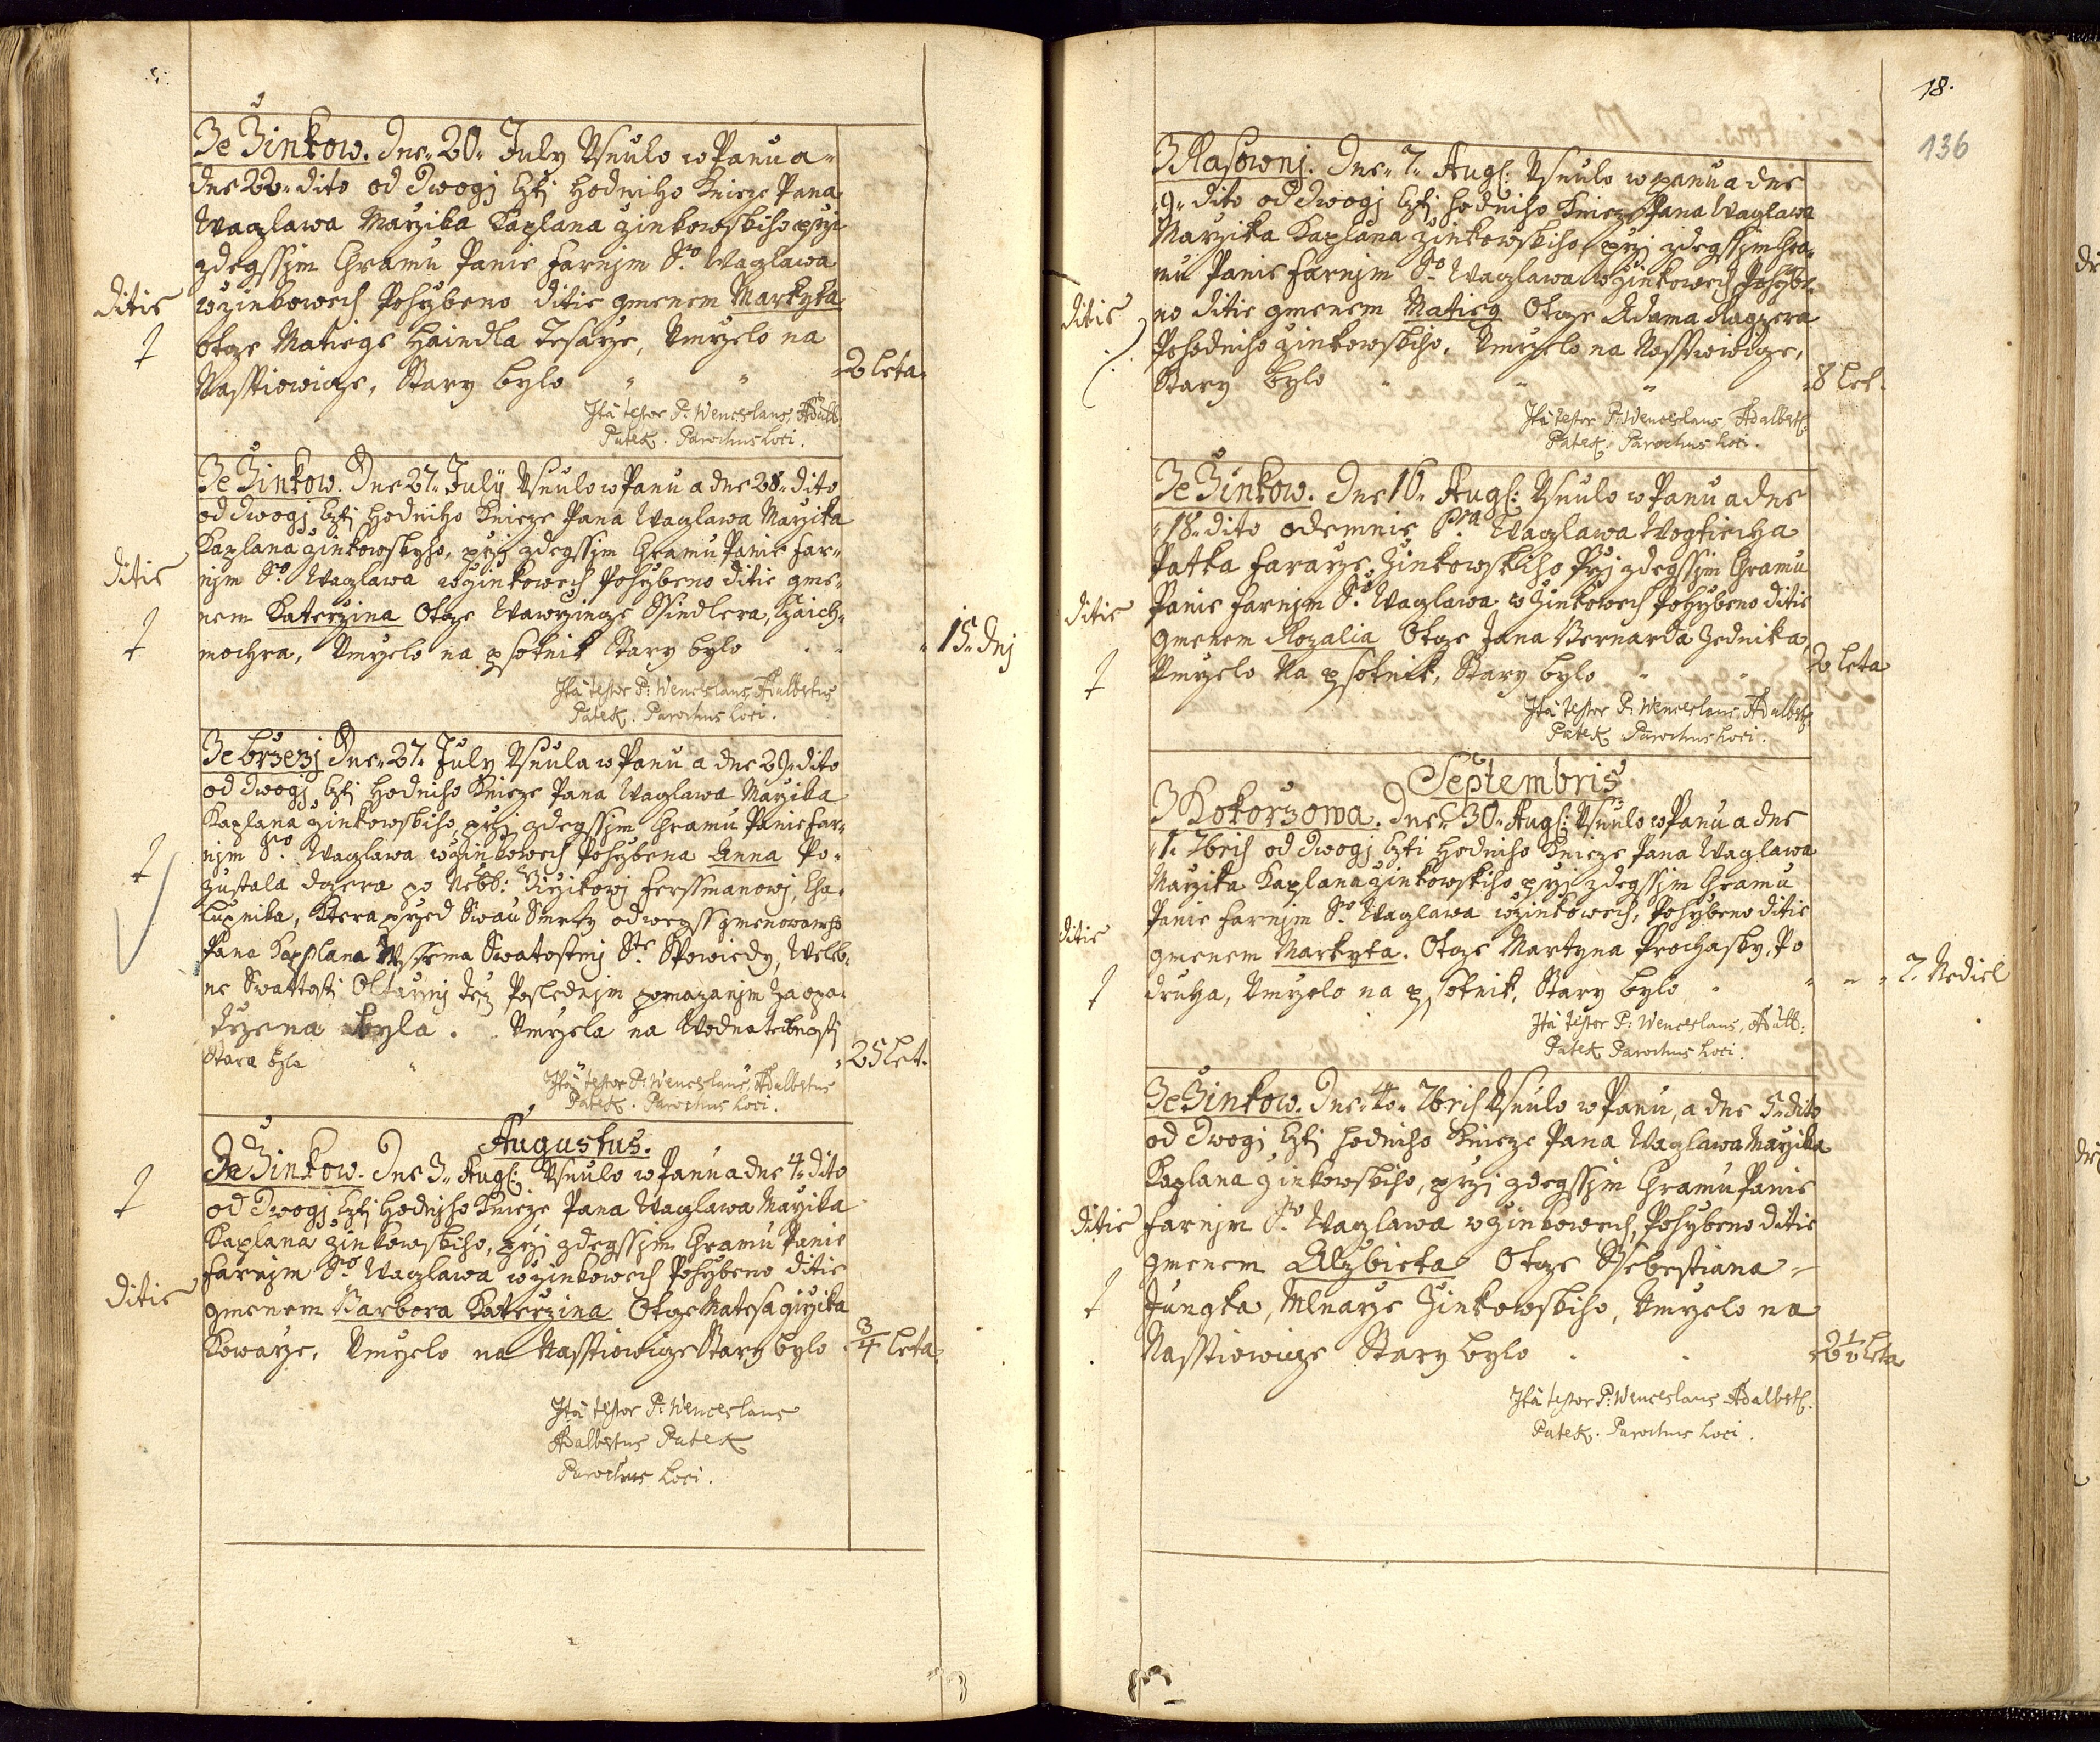 Ze Žinkow. Dne 20. July Usnulo w Panu a
dne 22. dito od Dwogj Czti Hodniho Knieze Pana
Waczlawa Marzika Kaplana Žinkowskiho przi
zdegssjm Chramu Panie Farnjm So. Waczlawa
w Žinkowech Pohrzbeno Ditie gmenem Markyta
Ditie
Otcze Matiege Haindla Tesarze, Umrzelo na
Nasstiowicze, Stary bylo
2 leta
Ita testor P. Wenceslaus Adalb.
Patek. Parochus Loci.
Ze Žinkow. Dne 27. July Usnulo w Panu a dne 28. dito
od Dwogj Czti Hodniho Knieze Pana Waczlawa Marzika
Kaplana Žinkowskyho, przj zdegssjm Chramu Panie Far-
njm So. Waczlawa w Žinkowech Pohrzbeno Ditie gme-
Ditie
nem Katerzina Otcze Wawrzincze Ssindlera,
mochra, Umrzelo na psotnik Stary bylo
15. Dnj
Ita testor P. Wenceslaus Adalbertus
Patek. Parochus Loci.
Dne 27. July Usnula w Panu a dne 29. dito
od Dwogj Czti Hodniho Knieze Pana Waczlawa Marzika
Kaplana Žinkowskiho, przj zdegssjm Chramu Panie Far-
njm So. Waczlawa w Žinkowech Pohrzbena Anna Po-
zustala Dczera po Nebb: Girzikowj Ferssmanowj, Cha-
lupnika, Ktera przed Swau Smrty od wegss gmenowaneho
Pana Kaplana Wssema Swatostmj Ste. Spowiedy, Weleb-
ne Swattosti Oltarnj też Poslednjm pomazanjm Zaopa-
trzena byla. Umrzela na Wodnatedlnosti
Stara byla
25 let.
Ita testor P. Wenceslaus Adalbertus
Patek. Parochus Loci.
Augustus.
Ze Žinkow. Dne 3. Aug: Usnulo w Panu a dne 4. dito
od Dwogj Czti Hodniho Knieze Pana Waczlawa Marzika
Kaplana Žinkowskiho, przj zdegssjm Chramu Panie
Farnjm So. Waczlawa w Žinkowech Pohrzbeno Ditie
Ditie
gmenem Barbora Katerzina Otcze Matesa Girzika
Kowarze, Umrzelo na Nasstiowicze Stary bylo
3/4 leta
Ita testor P. Wenceslaus
Adalbertus Patek
Parochus Loci.
18.
136
Z Klasownj. Dne 7. Aug: Usnulo w panu a dne
9. dito od Dwogj Czti Hodniho Knieze Pana Waczlawa
Marzika Kaplana Žinkowskiho, przj zdegssjm Chra-
mu Panie Farnjm So. Waczlawa w Žinkowech Pohrzbe-
Ditie
no Ditie gmenem Matieg Otcze Adama
Pohodniho Žinkowskiho, Umrzelo na Nasstiowicze,
Stary bylo
8 let.
Ita testor P. Wenceslaus Adalbert:
Patek, Parochus Loci.
Ze Žinkow. Dne 16. Aug: Usnulo w Panu a dne
18. dito odemnie Waczlawa Wogtiecha
Patka Fararze Žinkowskiho Przj zdegssjm Chramu
Panie Farnjm So. Waczlawa w Žinkowech Pohrzbeno Ditie
Ditie
gmenem Rozalia Otcze Jana Bernarda Zednika
Umrzelo Na psotnik, Stary bylo
2 leta
Ita testor P. Wenceslaus Adalbert:
Patek Parochus Loci.
Septembris
Z Kokorzowa. Dne 30. Aug: Usnulo w Panu a dne
1. 7bris od Dwogj Czti Hodniho Knieze Pana Waczlawa
Marzika Kaplana Žinkowskiho przj zdegssjm Chramu
Panie Farnjm So. Waczlawa w Žinkowech, Pohrzbeno Ditie
Ditie
gmenem Markyta. Otcze Martyna Prochasky, Po
druha, Umrzelo na psotnik, Stary bylo
7. Nediel
Ita testor P. Wenceslaus, Adalb:
Patek Parochus Loci.
Ze Žinkow. Dne 4. 7bris Usnulo w Panu, a dne 5. dito
od Dwogj Czti Hodniho Knieze Pana Waczlawa Marzika
Kaplana Žinkowskiho, przj zdegssjm Chramu Panie
Ditie
Farnjm So. Waczlawa w Žinkowech, Pohrzbeno Ditie
gmenem Alzbieta Otcze Ssebestiana
Jungka, Mlnarze Žinkowskiho, Umrzelo na
Nasstiowicze Stary bylo
2 1/2 leta
Ita testor P. Wenceslaus Adalbert:
Patek. Parochus Loci.